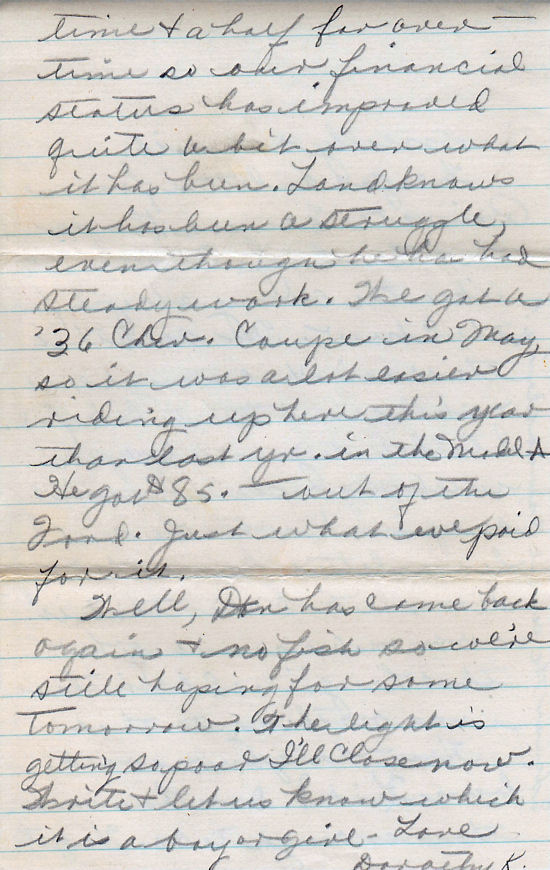 time & a half for over-
time so our financial
status has improved
quite a bit over what
it has been. Land knows
it has been a struggle,
even though he has had
steady work. We got a
'36 Chev. Coupe in May,
so it was a lot easier
riding up here this year
than last yr. in the Model A
He got $85. — out of the
Ford. Just what we paid
for it.
Well, Don has come back
again & no fish so we're
still hoping for some
tomorrow. The light is
getting so poor I'll close now.
Write & let us know which
it is a boy or girl - Love
Dorothy K.